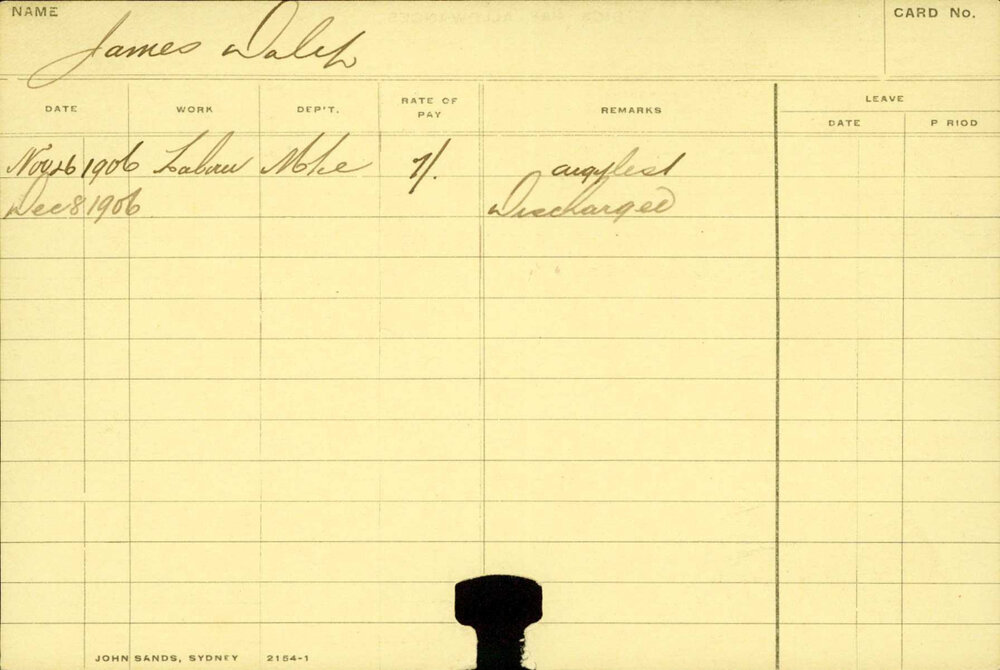 NAME
CARD No.
James Walsh
DATE WORK DEP'T. RATE OF PAY REMARKS LEAVE
DATE P RIOD
Nov 26 1906 Labour Mtce 7/. argyle st
Dec 8 1906 Discharged
JOHN SANDS, SYDNEY 2154-1